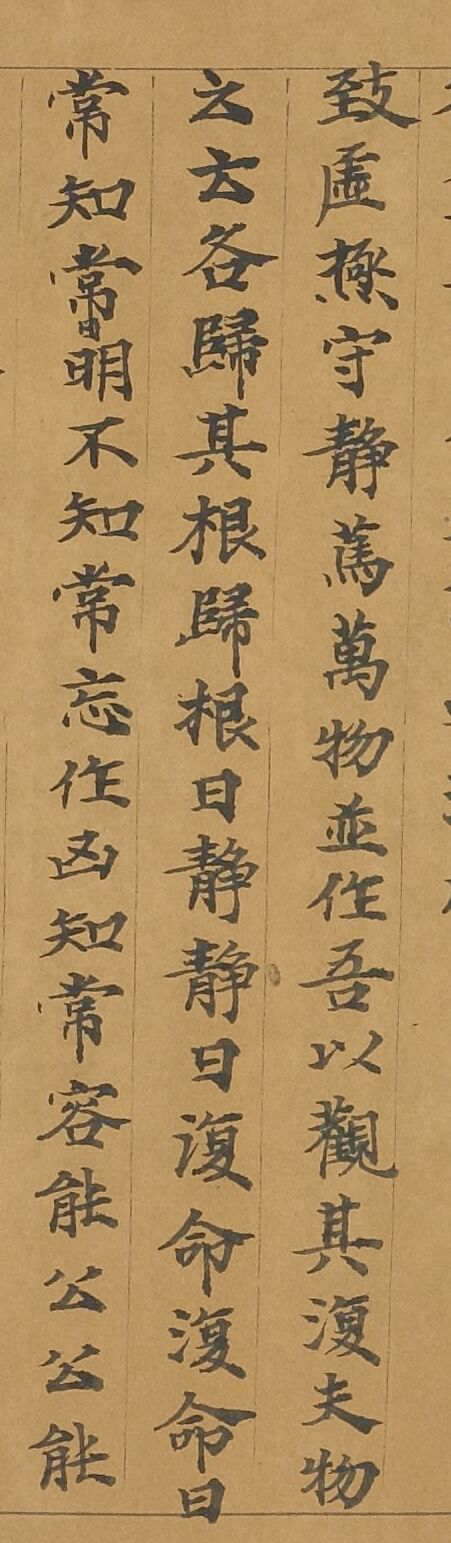 致虛極守靜萬萬物並作吾以觀其復夫物
云云各歸其根歸根曰靜靜曰復命復命曰
常知常曰明不知常忘作凶知常容能公公能